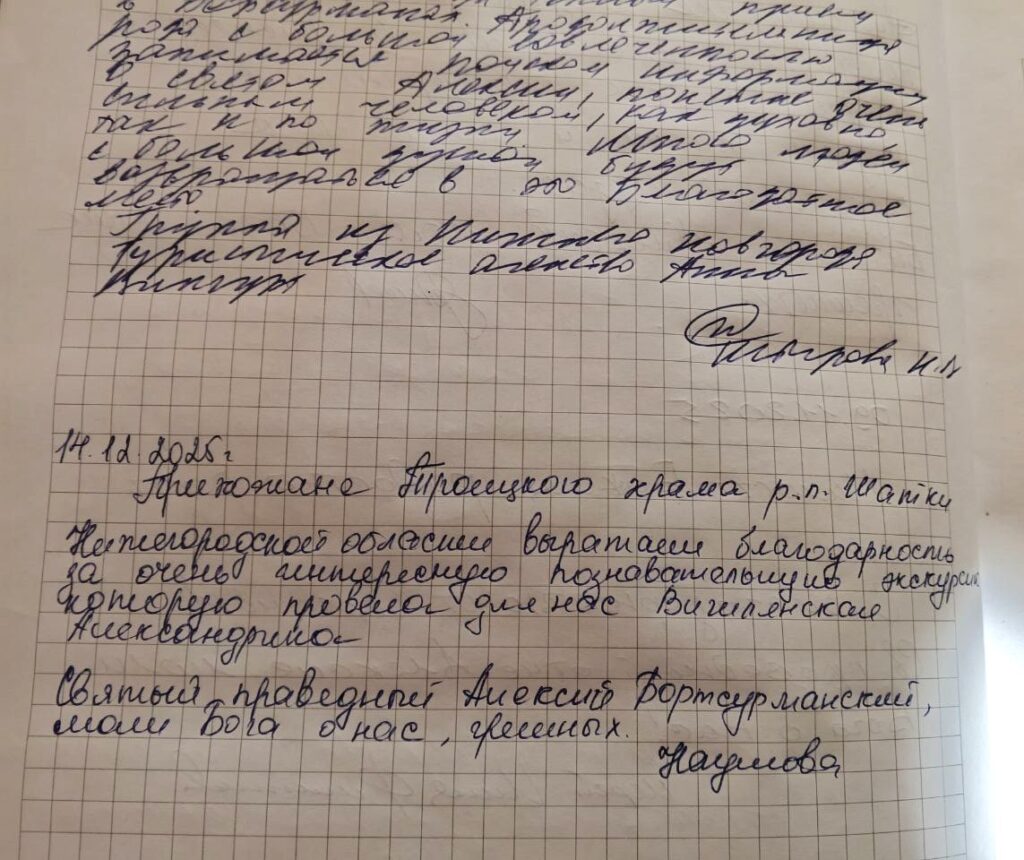 в Бортсурманах. Продолжительница
рода с большой увлеченностью
занимается поиском информации
о святом Алексии, поистине очень
сильным человеком, как духовно
так и по жизни. Много людей
с большой душой будут
возвращаться в это Благодатное
место
Группа из Нижнего Новгорода
Туристическое агенство Анны
Н.А
14.12.2025г
Прихожане Троицкого храма р.п. Шатки
Нижегородской области выражаем благодарность
за очень интересную познавательную экскурсию
которую провела для нас
Александрина
Святый праведный Алексий Бортсурманский,
моли Бога о нас, грешных.
Наумова